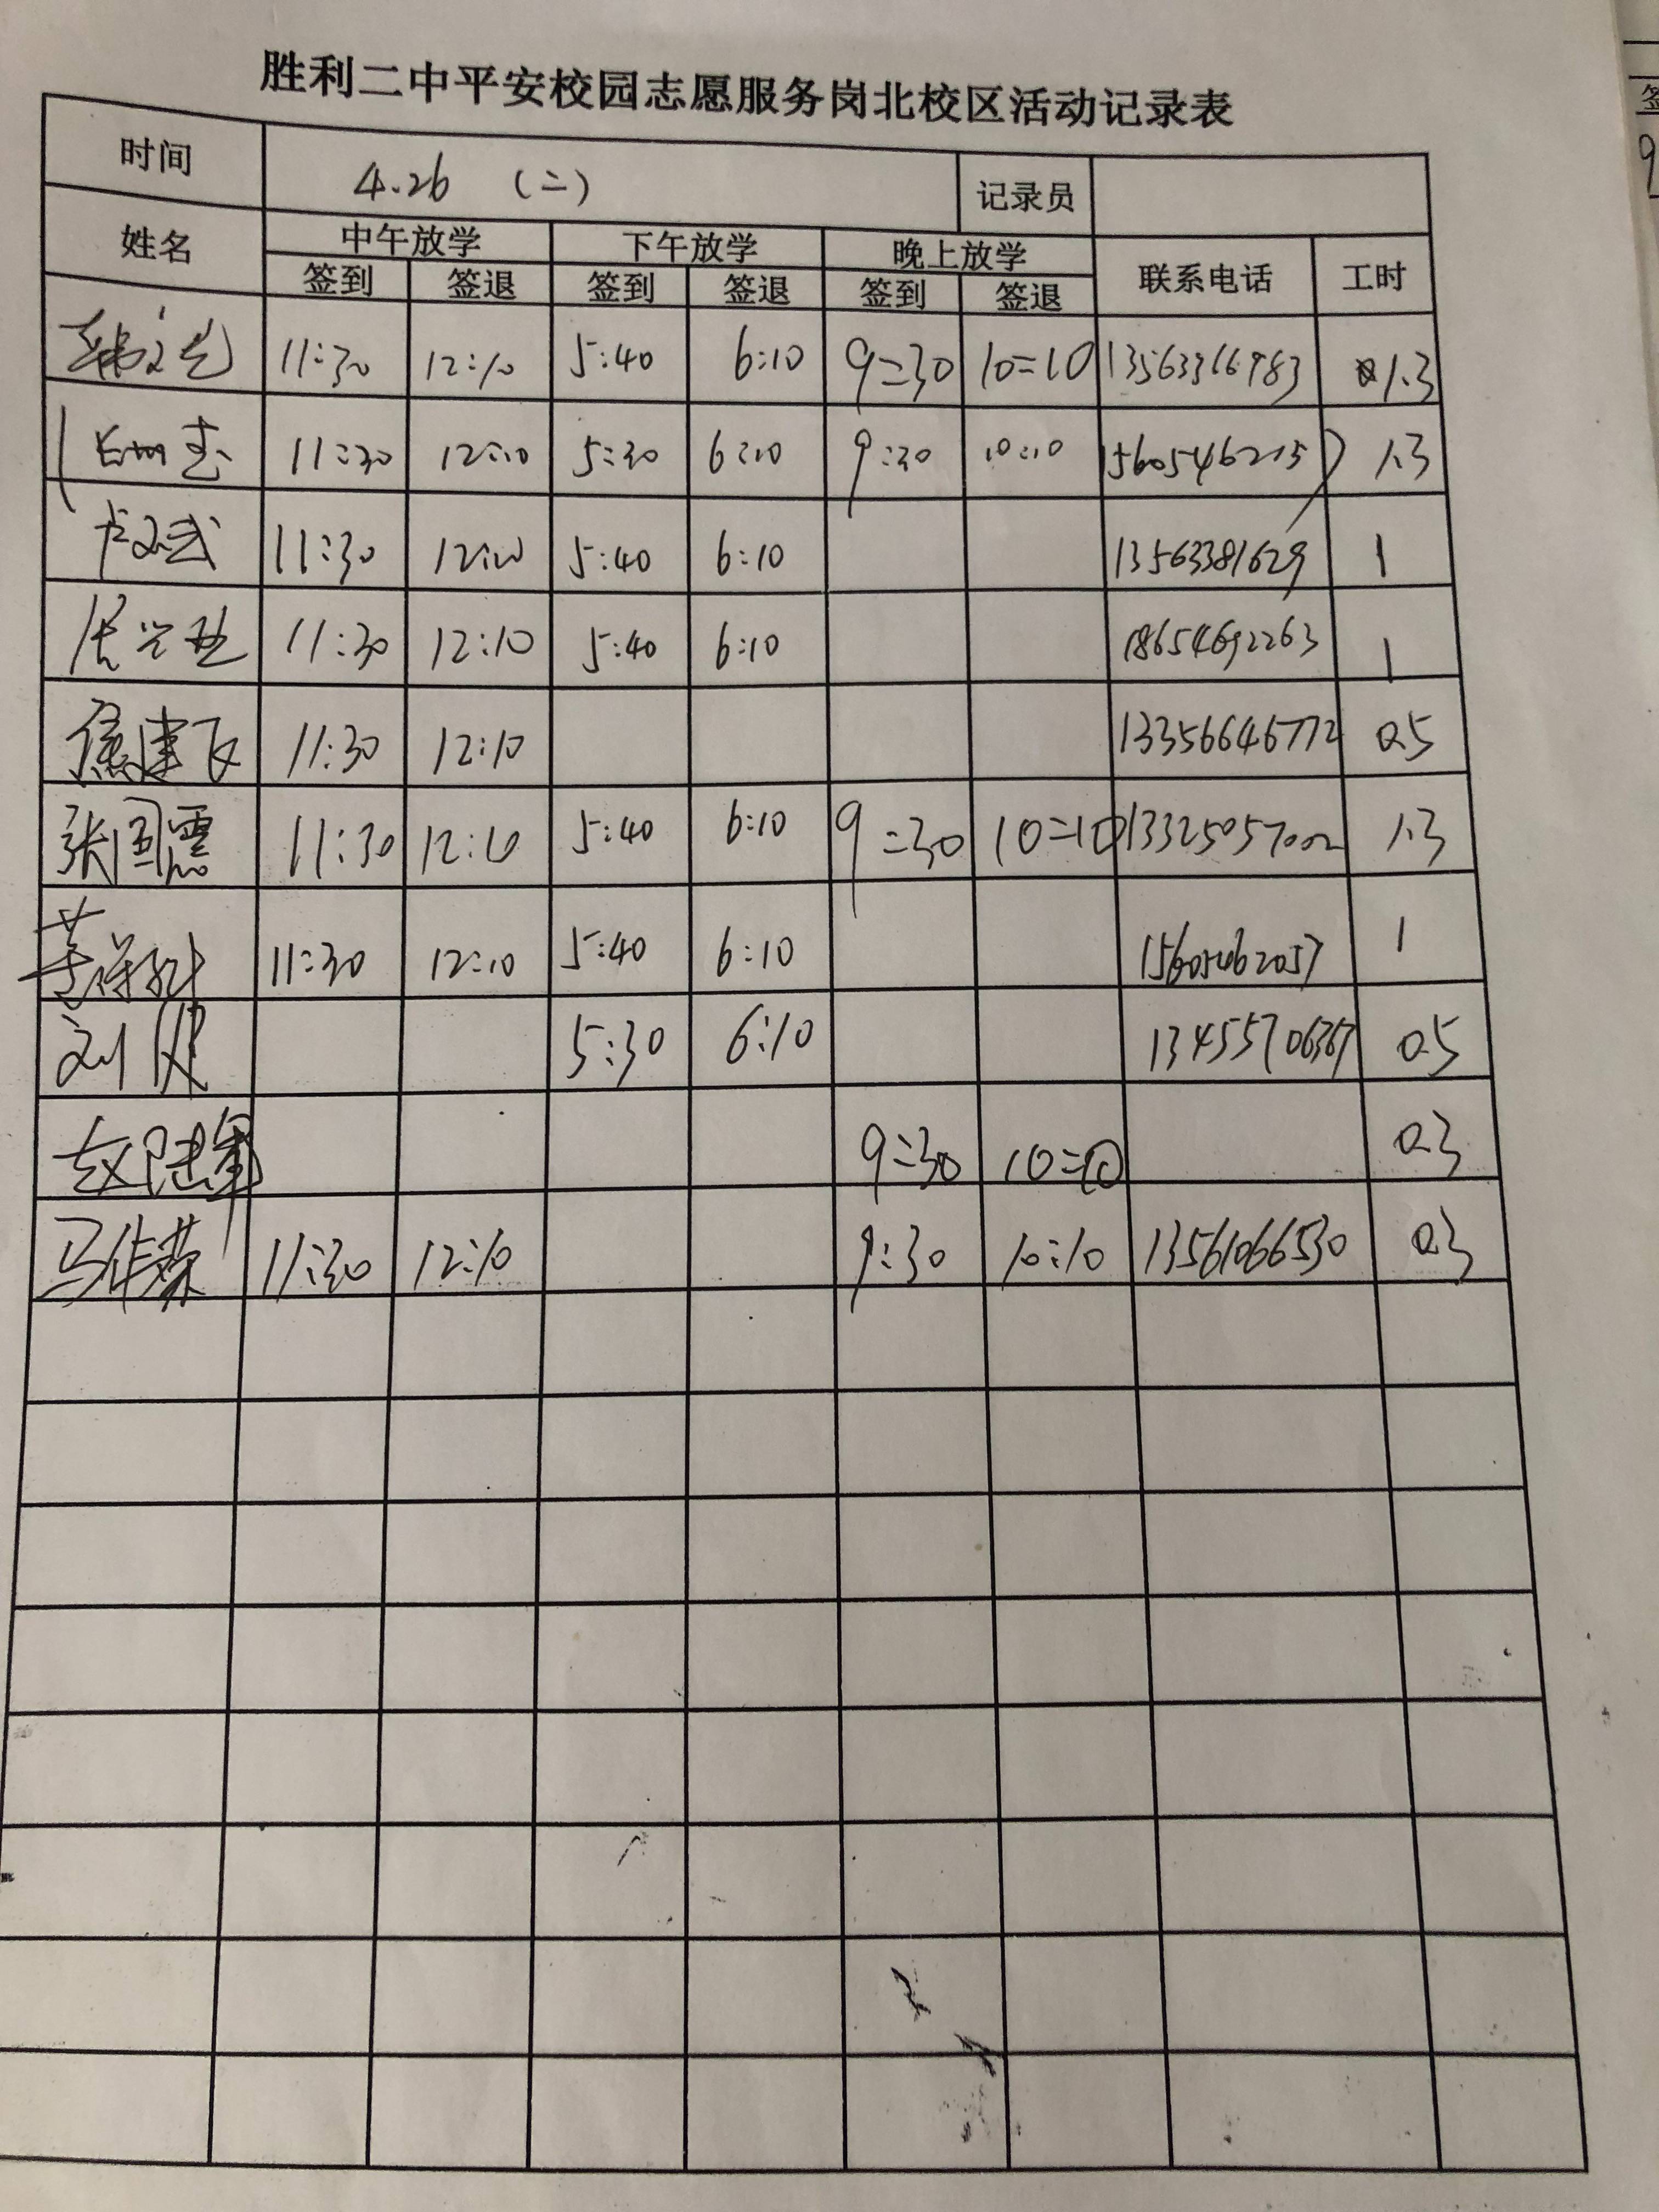 胜利二中平安校园志愿服务岗北校区活动记录表
时间 4.26 (二) 记录员
姓名 中午放学 下午放学 晚上放学 联系电话 工时
签到 签退 签到 签退 签到 签退
11:30 12:10 5:40 6:10 9:30 10=10 1.3
11:30 12:10 5:30 6:10 9:30 10:10 1.3
11:30 5:40 6:10 13563381629 1
11:30 12:10 5:40 6:10 18654692263 1
11:30 12:10 13356646772 0.5
张国震 11:30 12:10 5:40 6:10 9=30 10=10 13325057002 1.3
11:30 12:10 5:40 6:10 1
刘 5:30 6:10 13455706367 0.5
赵陆军 9=30 10=10 0.3
马作荣 11:30 12:10 9:30 10:10 13561066530 0.3
签
9